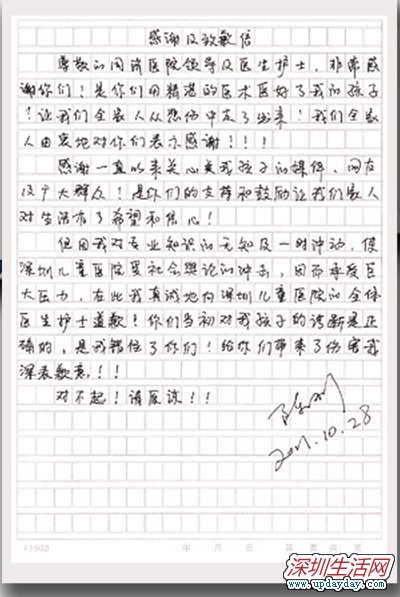 感谢及致歉信
尊敬的同济医院领导及医生护士,非常感
谢你们!是你们用精湛的医术医好了我的孩子
!让我们全家人从悲伤中走了出来!我们全家
人由衷地对你们表示感谢!!!
感谢一直以来关心关我孩子的媒体、网友
及广大群众!是你们的支持和鼓励让我们家人
对生活有了希望和信心!
但因我对专业知识的无知及一时冲动,使
深圳儿童医院受社会舆论的冲击,因而承受巨
大压力,在此我真诚地向深圳儿童医院的全体
医生护士道歉!你们当初对我孩子的诊断是正
确的,是我错怪了你们!给你们带来了伤害我
深表歉意!!
对不起!请原谅!!
2011.10.28
11503 年 月 日 第 页 共 页
深圳生活网
www.updayday.com